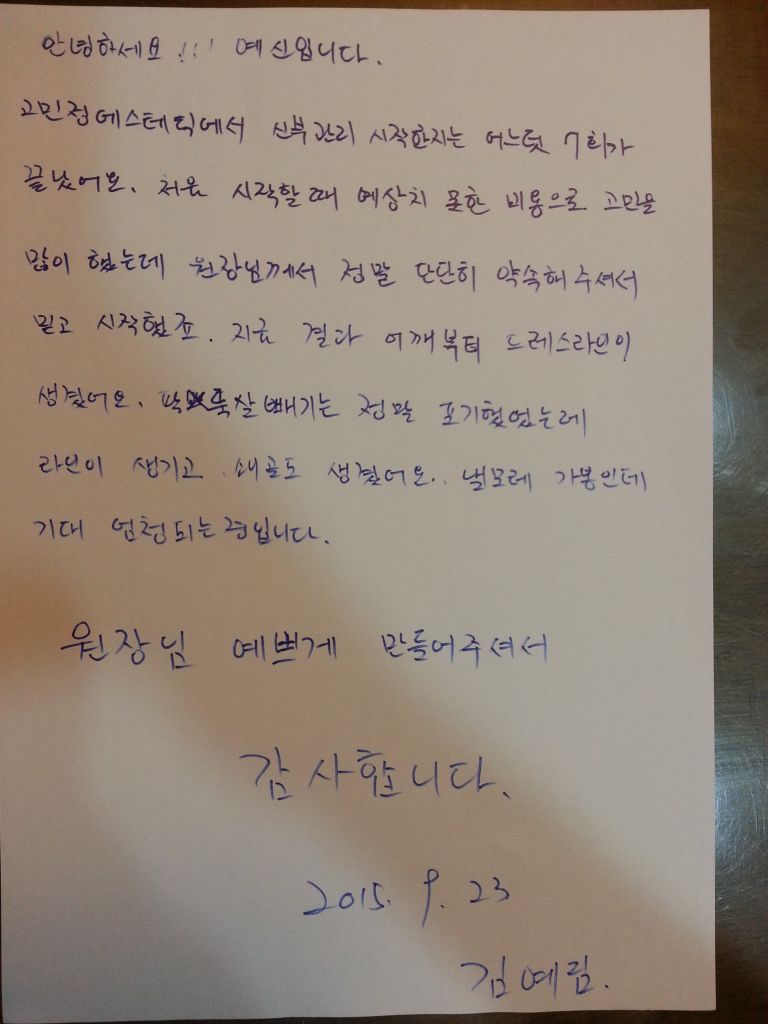 안녕하세요!!! 예신입니다.
고민정에스테틱에서 신부관리 시작한지는 어느덧 7회가
끝났어요. 처음 시작할때 예상치 못한 비용으로 고민을
많이 했는데 원장님께서 정말 단단히 약속해주셔서
믿고 시작했죠. 지금 결과 어깨부터 드레스라인이
생겼어요. 팔뚝살빼기는 정말 포기했었는데
라인이 생기고 쇄골도 생겼어요.. 낼모레 가봉인데
기대 엄청되는 중입니다.
원장님 예쁘게 만들어주셔서
감사합니다.
2015. 9. 23
김예림.